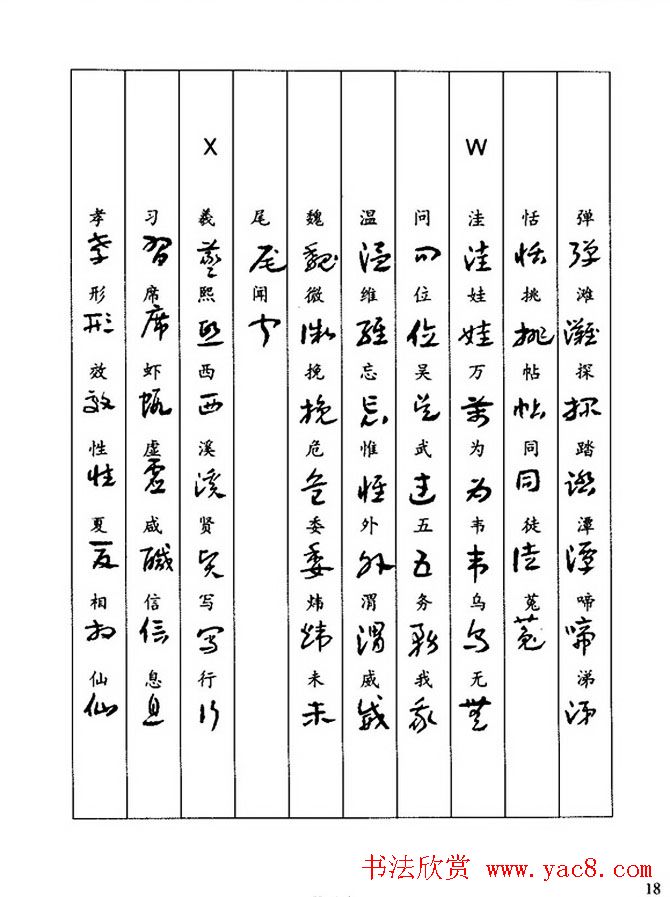 弹 滩 探 踏 潭 啼 涕
恬 挑 帖 同 徒 菟
W
洼 娃 万 为 韦 乌 无
问 位 吴 武 五 务 我
温 维 忘 惟 外 渭 威
魏 微 挽 危 委 炜 未
尾 闻
X
羲 熙 西 溪 贤 写 行
习 席 虾 虚 咸 信 息
孝 形 效 性 夏 相 仙
书法欣赏 www.yac8.com
18